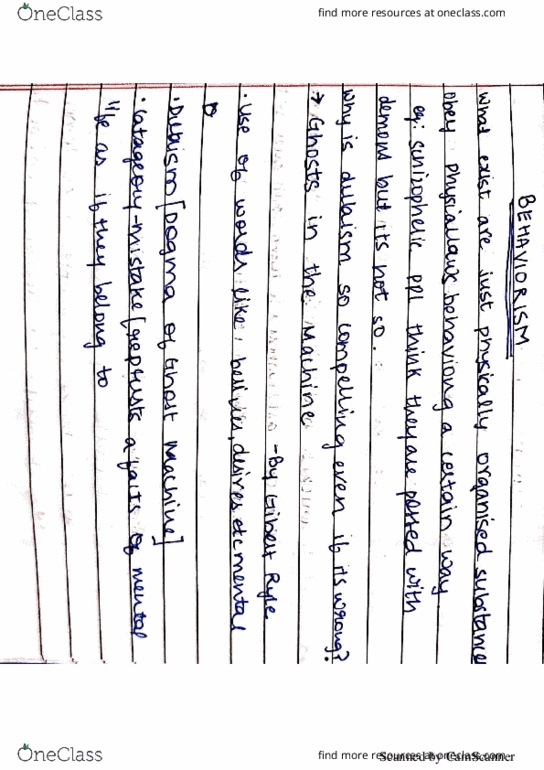 OneClass
find more resources at oneclass.com
BEHAVIORISM
what exist are just physically organised substance
obey physiallaws behaviong a certain way
eg: schizophelic ppl think they are possed with
demons but its not so.
Why is dulaism so compelling even if its wrong?
→ Ghosts in the Machine
- By Gilbert Ryle
· Use of words like, belives, desires etc mental
· Dulaism [Dogma of Ghost Machine]
· Catageory-mistake [reprsts a facts of mental
life as if they belong to
OneClass
find more resources at oneclass.com
Scanned by CamScanner